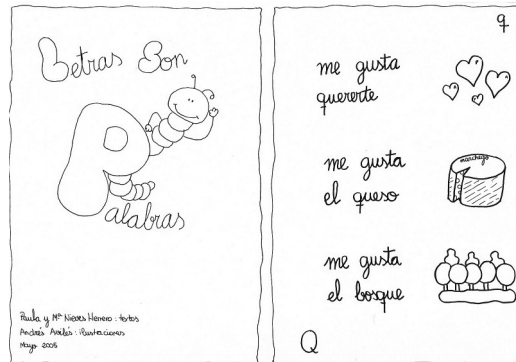 Letras Son
Palabras
Paula y Mª Nieves Herrero : textos
Andrés Avilés : ilustraciones
Mayo 2005
q
me gusta
quererte
me gusta
el queso
manchego
me gusta
el bosque
Q